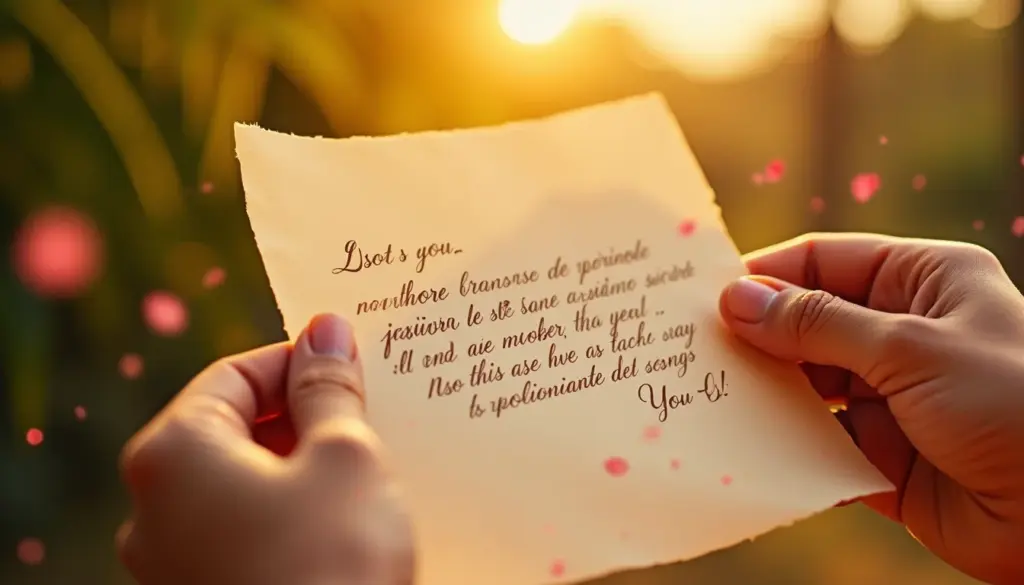 Dsot s you..
novithore bransnse de spirinole
jesiivrn le sk sane arsidme socirde
:ll and aie muober, tha yeal ..
Nso this ase hve as tachc say
ls spolioniante det scngs
You